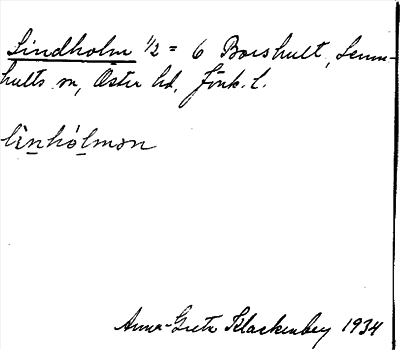 Lindholm 1/2 = 6 Boeshult, Lemn-
hults sn, Öster hd, Jönk. l.
lìnhólmən
Anna-Greta Klackenberg 1934